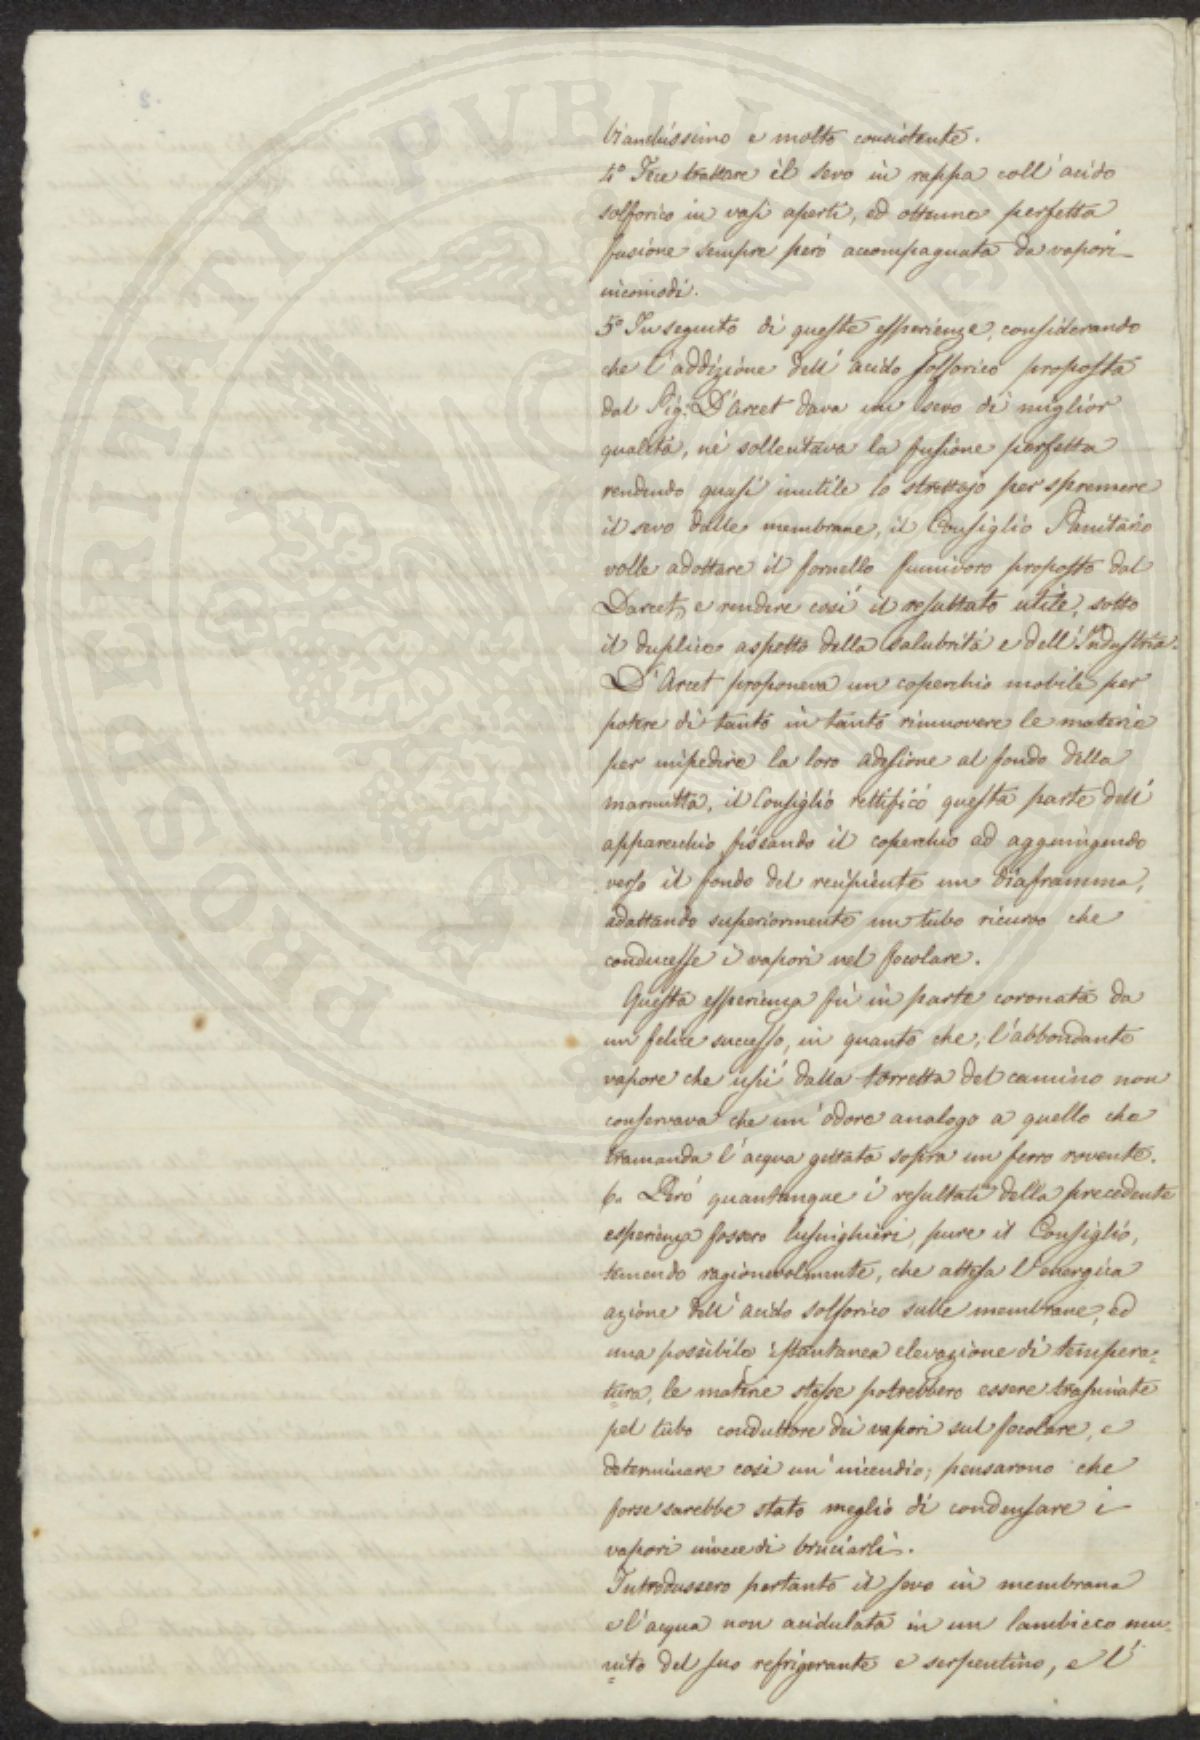 bianchissimo e molto consistente.
4° Fece trattare il sevo in rappa coll'acido
solforico in vasi aperti, ed ottenne perfetta
fusione sempre però accompagnata da vapori
incomodi.
5° In seguito di queste esperienze, considerando
che l'addizione dell'acido solforico proposta
dal Sig.r D'Arcet dava un sevo di miglior
qualità, nè sollentava la fusione perfetta
rendendo quasi inutile lo strettojo per spremere
il sevo dalle membrane, il Consiglio Sanitario
volle adottare il fornello fumivoro proposto dal
Darcet, e rendere così il resultato utile, sotto
il duplice aspetto della salubrità e dell'Industria.
D'Arcet proponeva un coperchio mobile per
potere di tanto in tanto rimuovere le materie
per impedire la loro adesione al fondo della
marmitta, il Consiglio rettificò questa parte dell'
apparecchio fissando il coperchio ad aggiungendo
verso il fondo del recipiente un diaframma,
adattando superiormente un tubo ricurvo che
conducesse i vapori nel focolare.
Questa esperienza fù in parte coronata da
un felice successo, in quanto che, l'abbondante
vapore che uscì dalla torretta del camino non
conservava che un'odore analogo a quello che
tramanda l'acqua gettata sopra un ferro rovente.
6. Però quantunque i resultati della precedente
esperienza fossero lusinghieri, pure il Consiglio,
temendo ragionevolmente, che attesa l'energica
azione dell'acido solforico sulle membrane, ed
una possibile istantanea elevazione di tempera=
=tura, le materie stesse potrebbero essere trascinate
pel tubo conduttore dei vapori sul focolare, e
determinare così un'incendio; pensarono che
forse sarebbe stato meglio di condensare i
vapori invece di bruciarli.
Introdussero pertanto il sevo in membrana
e l'acqua non acidulata in un lambicco mu=
=nito del suo refrigerante e serpentino, e l'
PROSPERITATI PVBLICAE